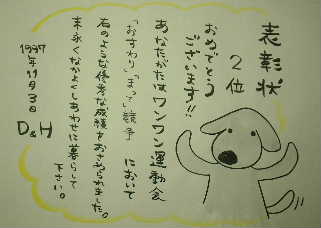 表彰状
2位
おめでとう
ございます!!
あなたがたはワンワン運動会
「おすわり」「まって」競争 において
右のような優秀な成績をおさめられました。
末永くなかよくしあわせに暮らして
下さい。
1997年11月3日
D&H